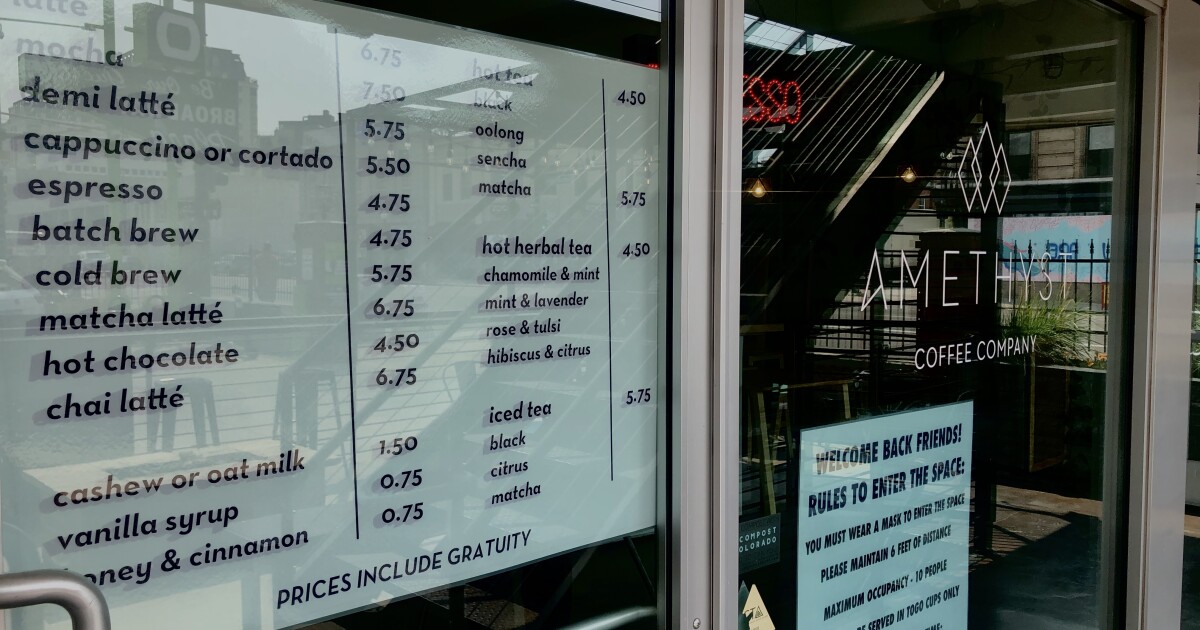 latte
mocha
demi latté
cappuccino or cortado
espresso
batch brew
cold brew
matcha latté
hot chocolate
chai latté
cashew or oat milk
vanilla syrup
honey & cinnamon
6.75
7.50
5.75
5.50
4.75
4.75
5.75
6.75
4.50
6.75
1.50
0.75
0.75
hot tea
black
oolong
sencha
matcha
hot herbal tea
chamomile & mint
mint & lavender
rose & tulsi
hibiscus & citrus
iced tea
black
citrus
matcha
4.50
5.75
4.50
5.75
PRICES INCLUDE GRATUITY
AMETHYST
COFFEE COMPANY
WELCOME BACK FRIENDS!
RULES TO ENTER THE SPACE:
YOU MUST WEAR A MASK TO ENTER THE SPACE
PLEASE MAINTAIN 6 FEET OF DISTANCE
MAXIMUM OCCUPANCY - 10 PEOPLE
SERVED IN TOGO CUPS ONLY
COMPOST
COLORADO